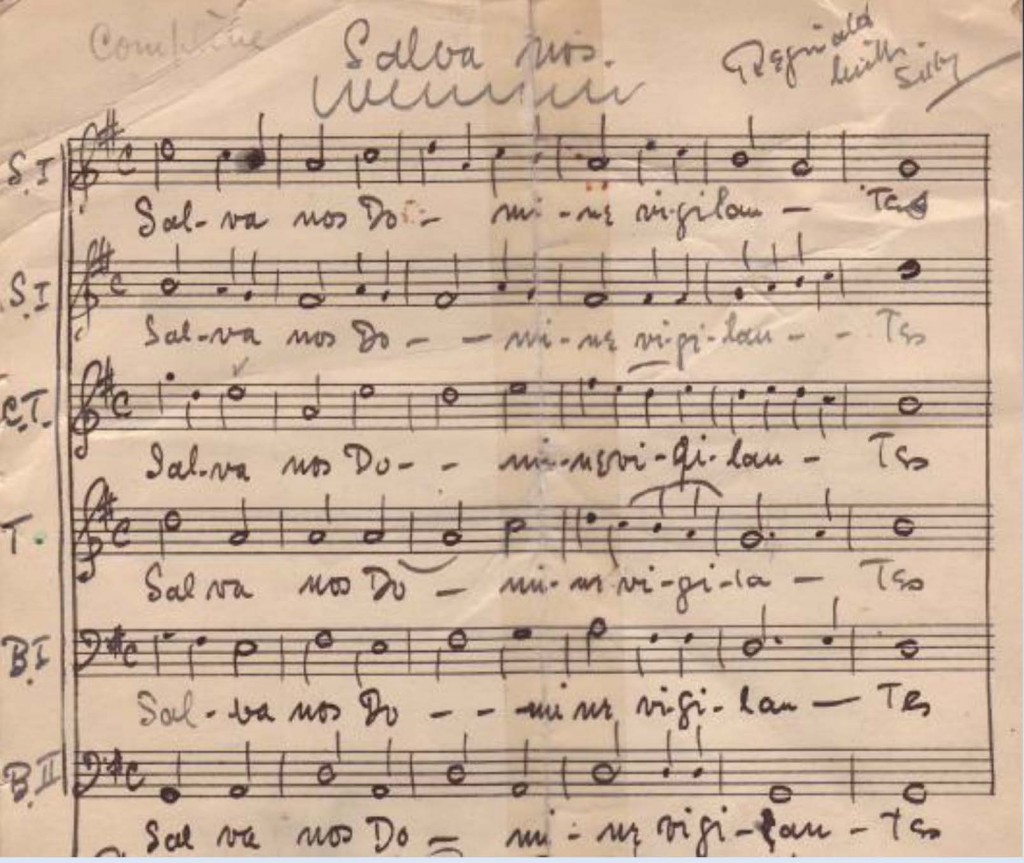 Complène
Salva nos.
Reginald
Smith
S.I
C
Sal-va nos Do - mi - ne vigilan - Tes
S.I
C
Sal-va nos Do - - mi - ne vi-gi-lan - - Tes
C.T.
C
Sal-va nos Do - - mi-ne vi-gi-lan - Tes
T.
C
Sal va nos Do - mi-ne vi-gi-la - Tes
B.I
C
Sal-va nos Do - - mi ne vigi-lan - Tes
B.II
C
Sal va nos Do - mi-ne vigi-lan - Tes